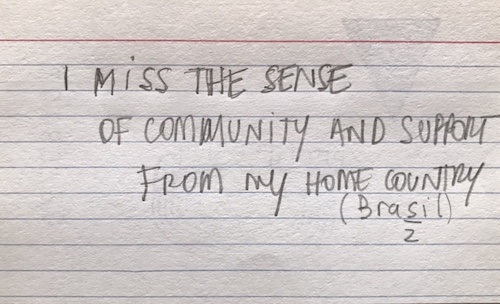 I MISS THE SENSE
OF COMMUNITY AND SUPPORT
FROM MY HOME COUNTRY
(Brasil)
2